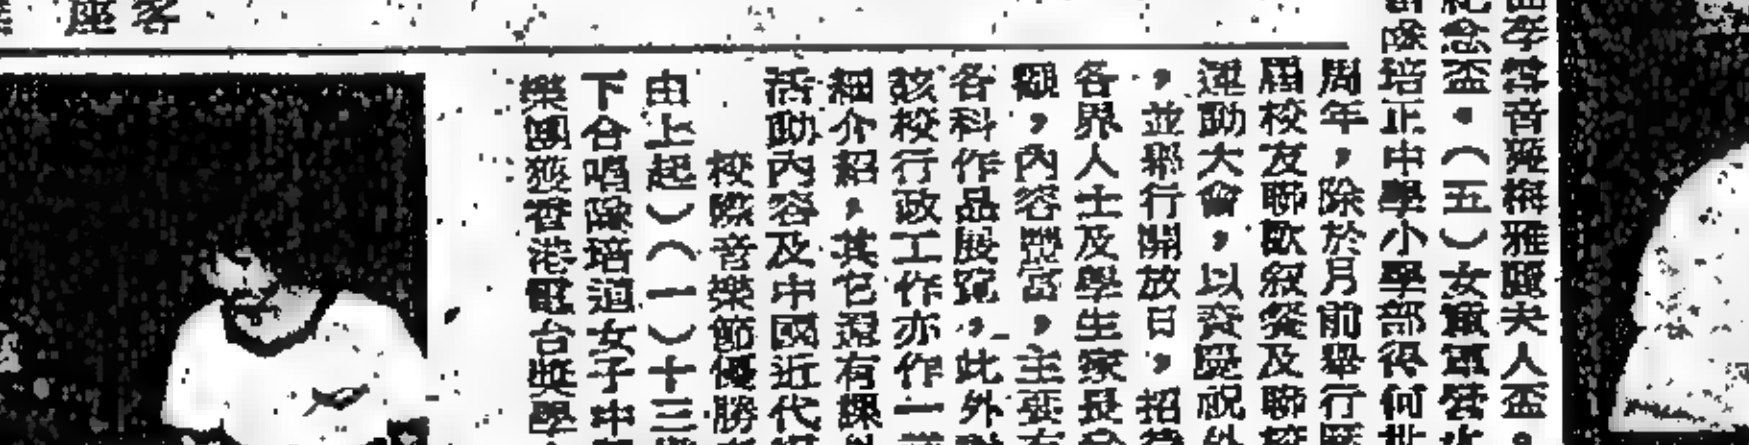 座客
曲李雪音龐梅雅麗夫人盃。
紀念盃。(五)女童軍營火
隊培正中學小學部得何
周年,除於月前舉行
屆校友聯歡叙餐及聯校
運動大會,以資慶祝外
,並舉行開放日,招待
各界人士及學生家長
觀,內容豐富,主要有
各科作品展覽,此外對
該校行政工作亦作一
細介紹,其它還有課外
活動內容及中國近代
校際音樂節優勝
由上起)(一)十三歲
下合唱隊培道女子中
樂團獲香港電台獎學